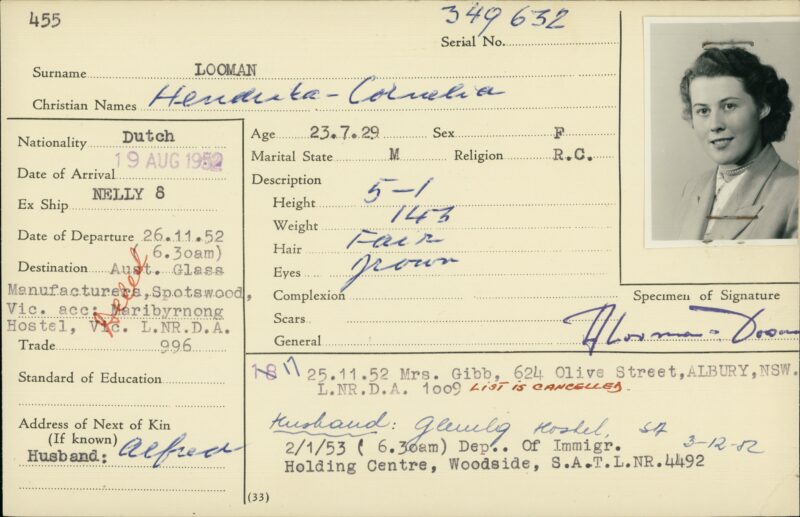 455
349632
Serial No.
Surname LOOMAN
Christian Names Hendrika - Cornelia
Nationality Dutch
Date of Arrival 19 AUG 1952
Ex Ship NELLY 8
Date of Departure 26.11.52
6.30am)
Destination Aust. Glass
Manufacturers, Spotswood,
Vic. acc: Maribyrnong
Hostel, Vic. L.NR.D.A.
Trade 996
Standard of Education
Address of Next of Kin
(If known)
Husband: Alfred
Age 23.7.29 Sex F
Marital State M Religion R.C.
Description
Height 5-1
Weight
Hair Fair
Eyes
Complexion
Scars
General
Specimen of Signature
Looman
18 17 25.11.52 Mrs. Gibb, 624 Olive Street, ALBURY, NSW.
L.NR.D.A. 1009 LIST IS CANCELLED
Husband: Glenelg Hostel, SA
2/1/53 ( 6.30am) Dep.. Of Immigr. 3-12-52
Holding Centre, Woodside, S.A.T.L.NR.4492
(33)